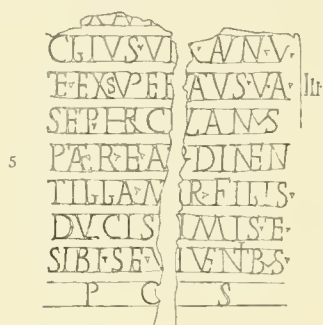 CLIVS·VI C·AVN·V·
E·EXSVPER AVSVA·
SEP·HRC LANVS
5 PÆ·R·E·A DINEN
TILLA·N R·FILIS·
DVCIS IMIS·E·
SIBI·SEV IVENTBVS·
P C S